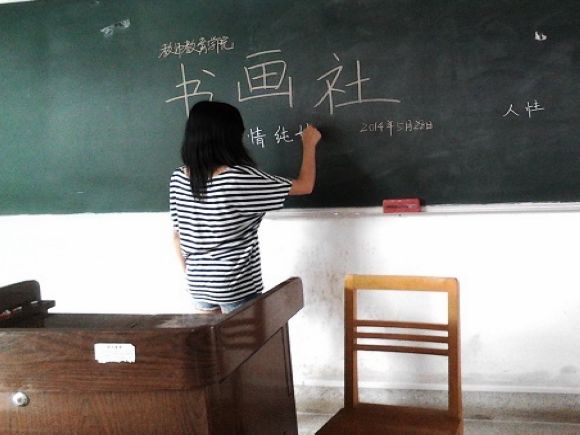 教师教育学院
书画社
情纯
2014年5月28日
人性